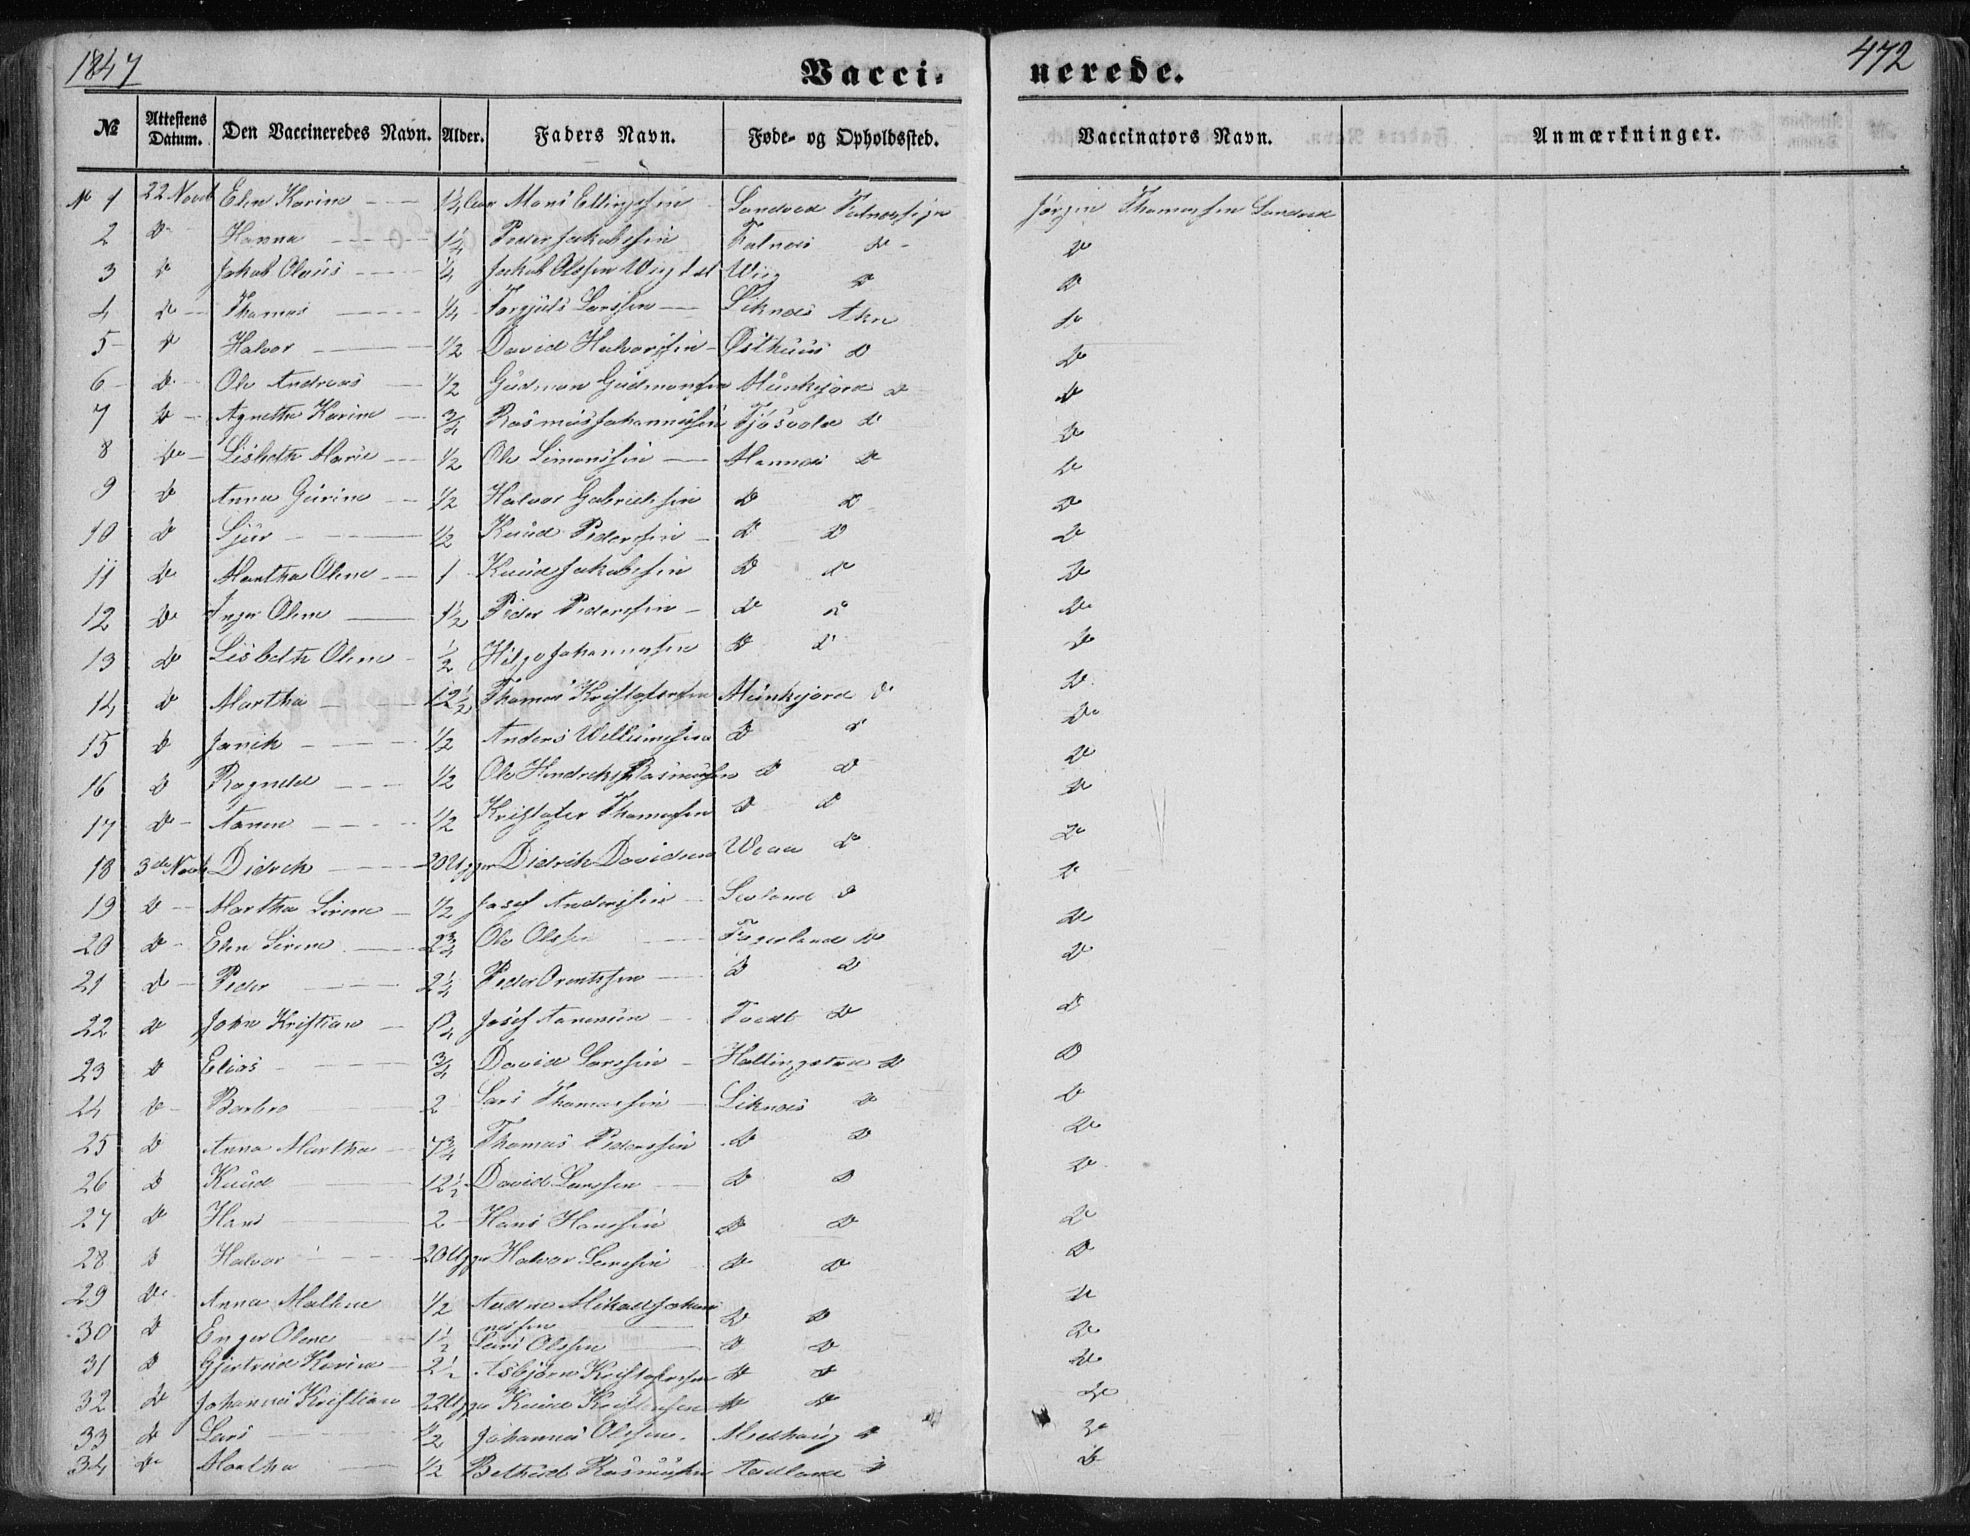 1847
472
Vacci-
nerede.
№ Attestens Datum. Den Vaccineredes Navn. Alder. Faders Navn. Føde- og Opholdssted. Vaccinators Navn. Anmærkninger.
№ 1 22 Novb Elen Karine 1/4 Aar Mons Ellingsen Sandved Jørgen Thomassen Sandved
2 Do Hanna 1 1/4 Peder Jakobsen Falnæs Do Do
3 Do Jakob Olaus 1/4 Jakob Olssen Wiig Do Do
4 Do Thomas 1/4 Torgjuls Larssen Liknæs Akre Do
5 Do Halvor 1/2 David Halvorssen Østhuus Do Do
6 Do Ole Andreas 1/2 Gudmun Gudmunsen Munkejord Do Do
7 Do Agnetha Karine 3/4 Rasmus Johannessen Tjøsvold Do Do
8 Do Lisbeth Marie 1/2 Ole Simonssen Mannes Do Do
9 Do Anna Gurine 1/2 Halvor Gabrielssen Do Do Do
10 Do Sjur 1/2 Knud Pederssen Do Do Do
11 Do Martha Oline 1 Knud Jakobssen Do Do Do
12 Do Inger Oline 1 1/2 Peder Pederssen Do Do Do
13 Do Lisbeth Oline 1/2 Helge Johannessen Do Do Do
14 Do Martha 12 1/2 Thomas Kristofersen Munkejord Do Do
15 Do Janik 1/2 Anders Willumsen Do Do Do
16 Do Ragnele 1/2 Ole Hendrik Rasmussen Do Do Do
17 Do Aanen 1/2 Kristofer Thomessen Do Do Do
18 3de Novb Didrik 20 Uger Didrik Davidsen Weaa Do Do
19 Do Martha Serene 1/2 Josef Anderssen Sevland Do Do
20 Do Elen Serene 2 3/4 Ole Olssen Fagerland Do Do
21 Do Peder 2 1/4 Peder Orentssen Do Do Do
22 Do John Kristian 1 3/4 Josef Aanensen Tvedt Do Do
23 Do Elias 3/4 David Larssen Hallingstad Do Do
24 Do Barbro 2 Lars Thomassen Liknæs Do Do
25 Do Anna Martha 7 3/4 Thomas Pederssen Do Do Do
26 Do Knud 12 1/2 David Larssen Do Do Do
27 Do Hans 2 Hans Hanssen Do Do Do
28 Do Halvor 20 Uger Halvor Larssen Do Do Do
29 Do Anna Malene 1/2 Mikael Johan
nessen Do Do Do
30 Do Enger Olene 1 1/2 Lars Olssen Do Do Do
31 Do Gjertrud Karine 2 1/2 Asbjørn Kristofersen Do Do Do
32 Do Johannes Kristian 22 Uger Knud Do Do Do
33 Do Lars 1/2 Johannes Olssen Medhaug Do Do
34 Do Martha 1/2 Rasmussen Aadland Do Do